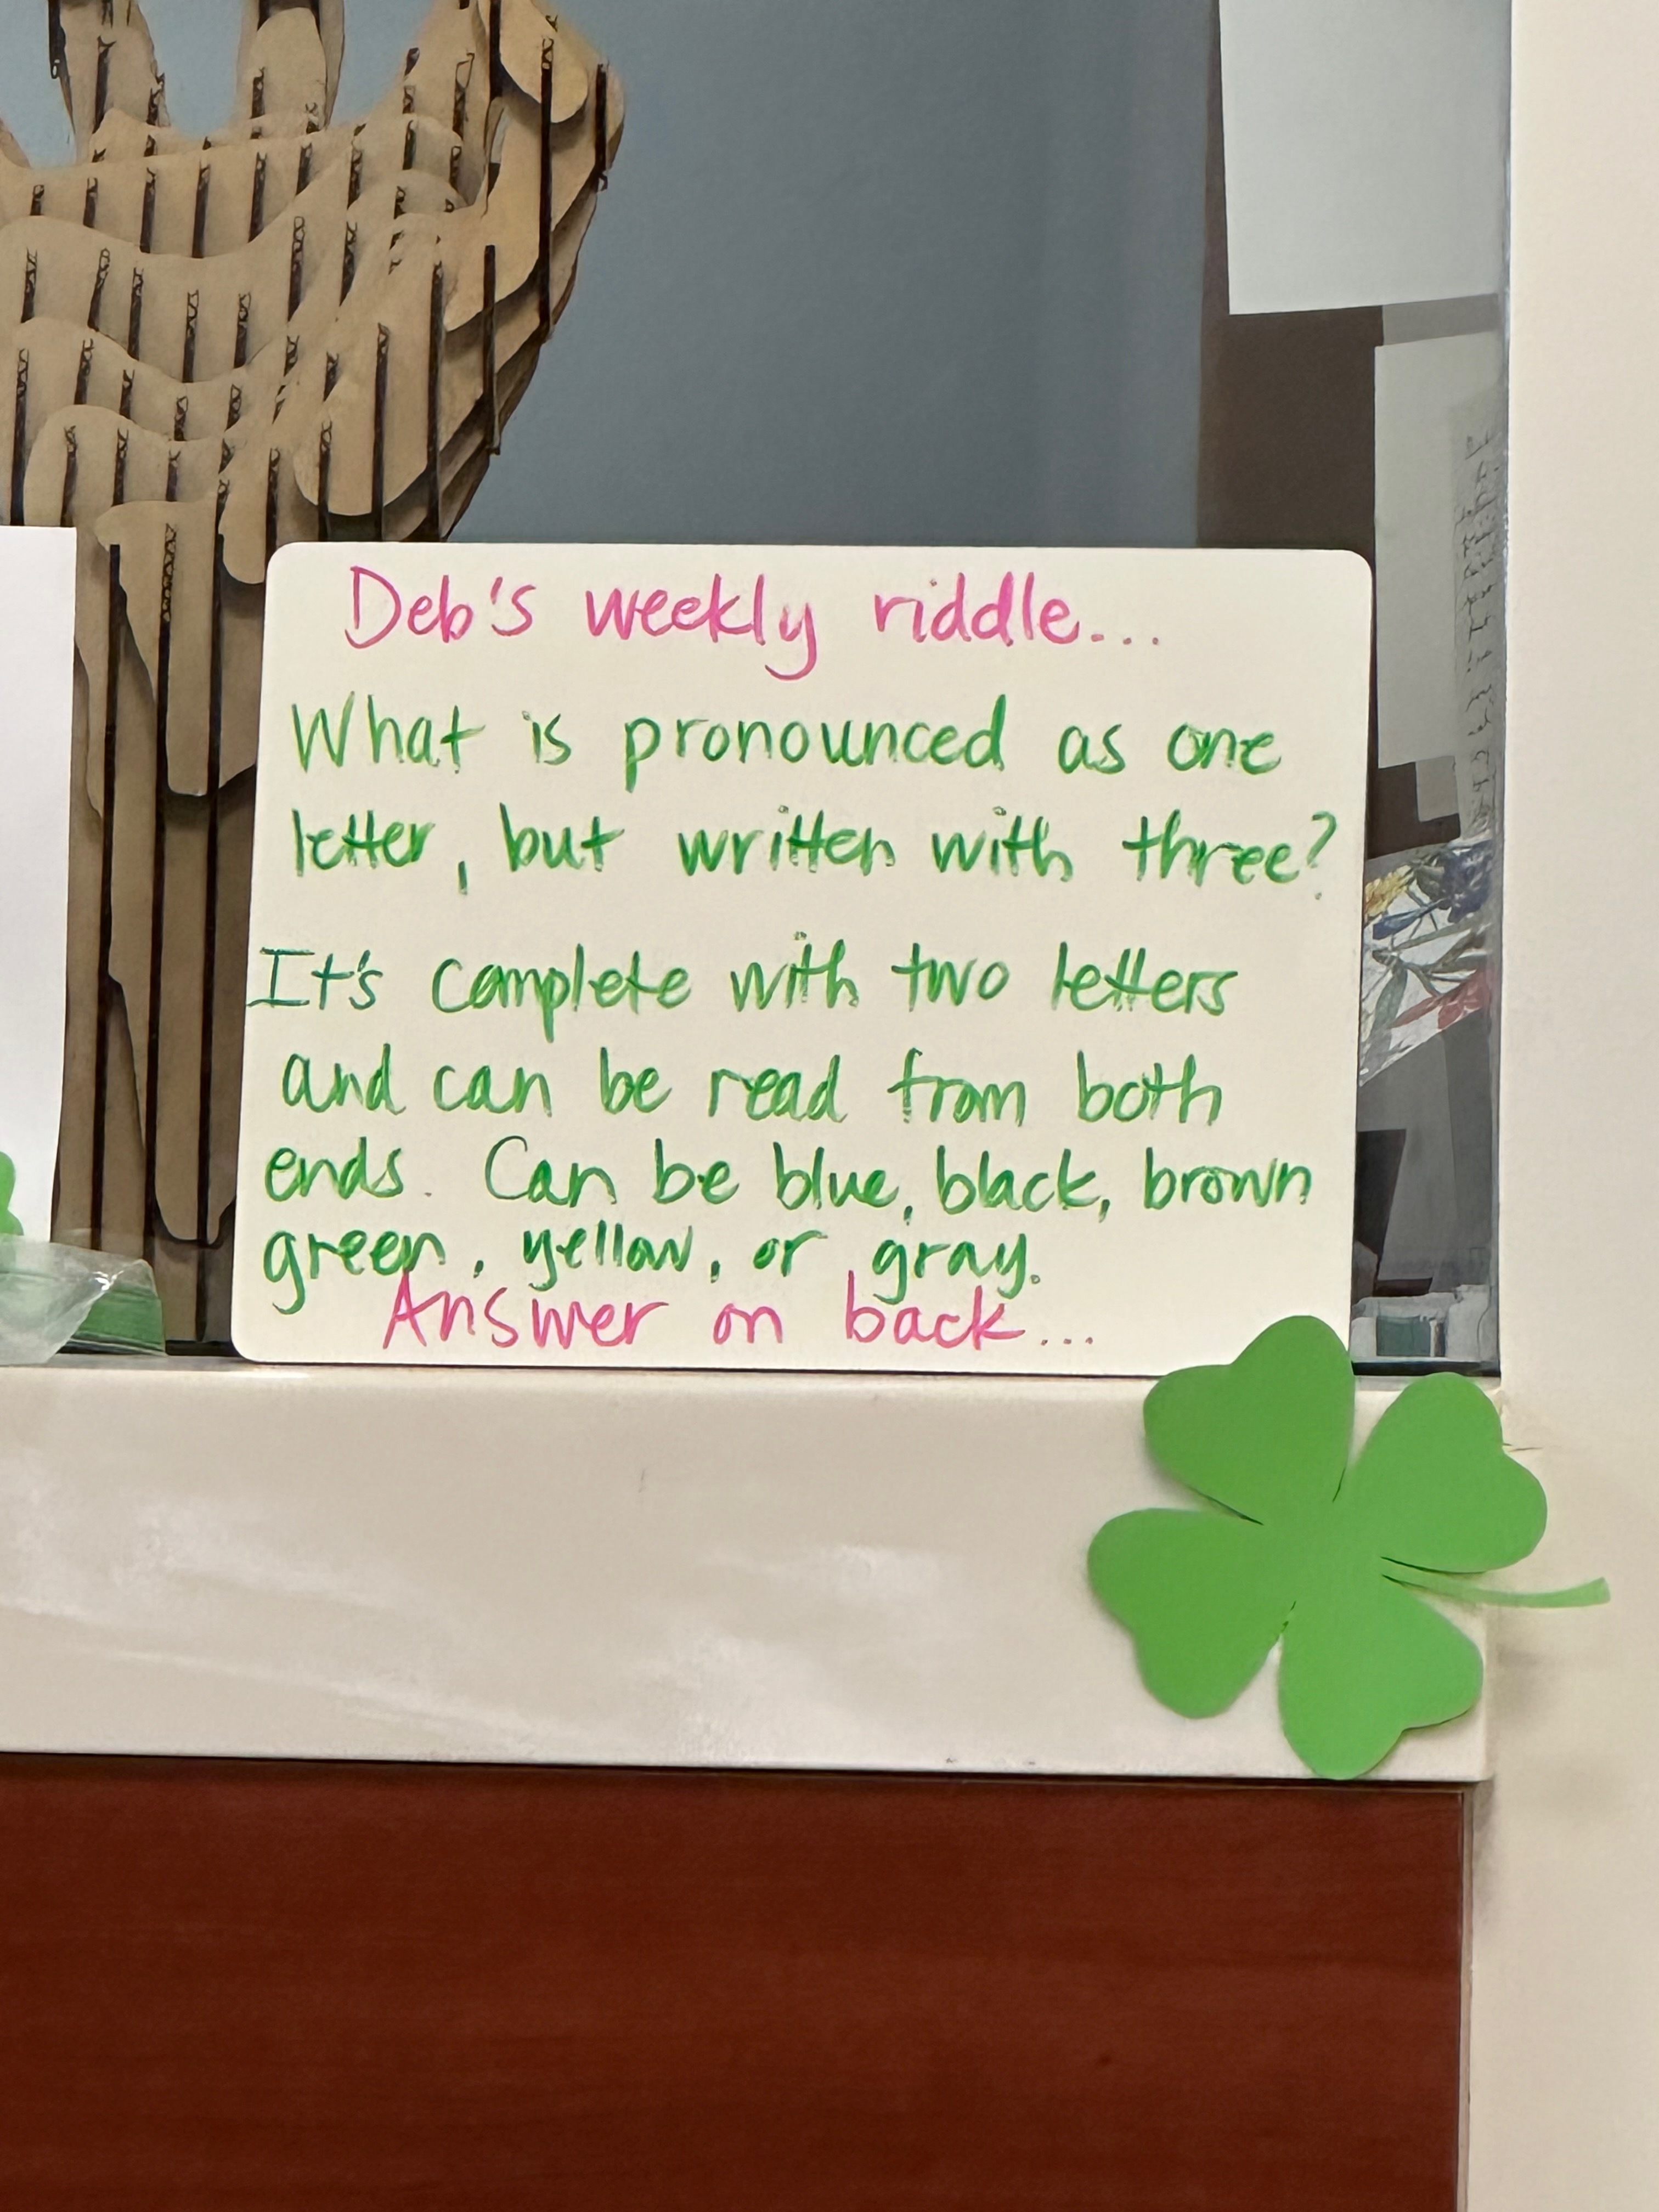 Deb's weekly riddle...
What is pronounced as one
letter, but written with three?
It's complete with two letters
and can be read from both
ends. Can be blue, black, brown
green, yellow, or gray.
Answer on back...